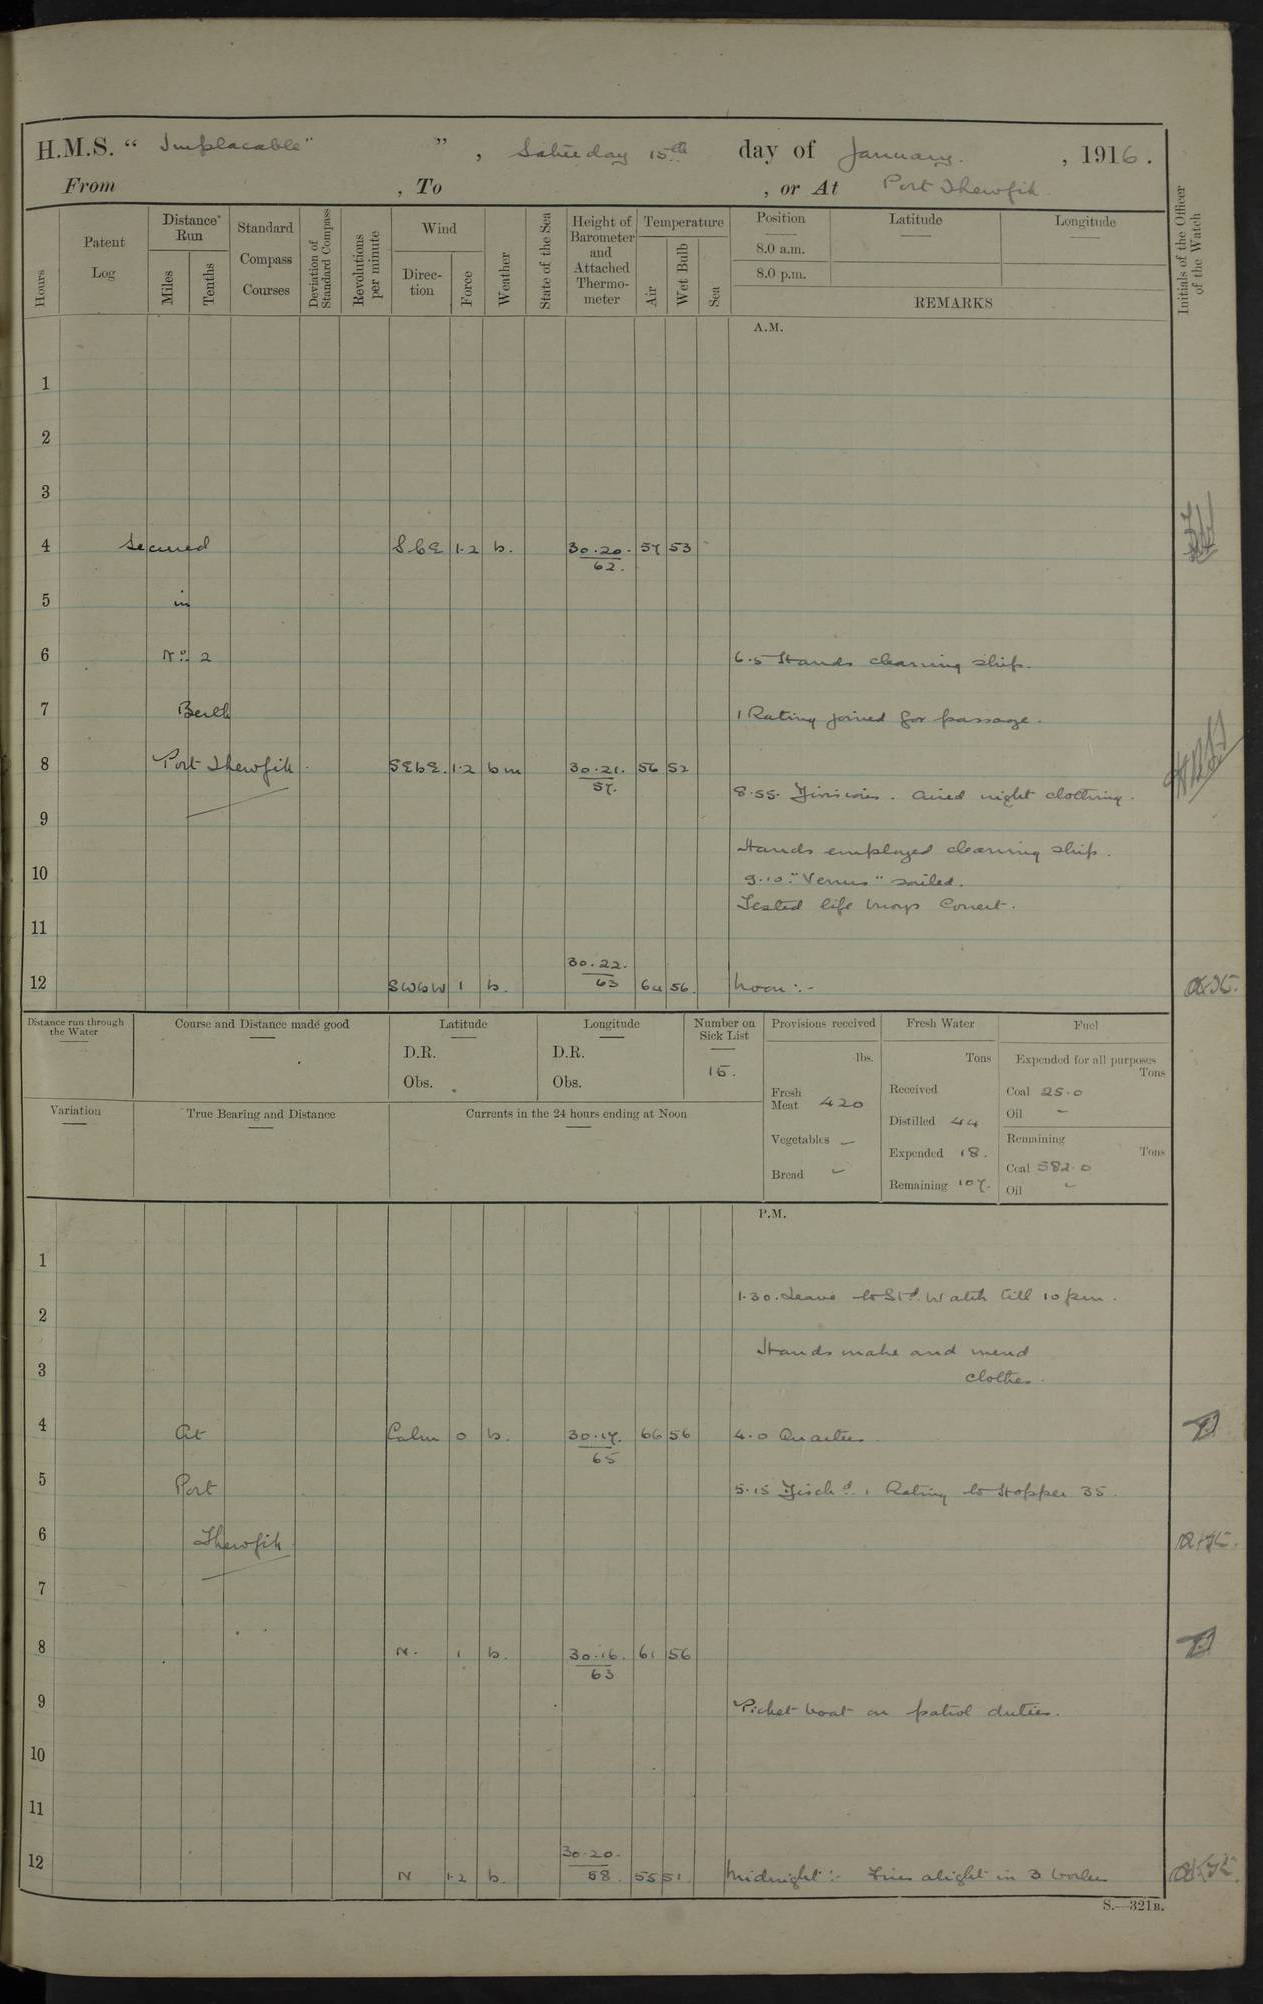 H.M.S. “ Implacable" ” , Saturday 15th day of January. , 1916.
From , To , or At Port Thewfik.
Hours
Patent Log
Distance Run
Miles
Tenths
Standard Compass Courses
Deviation of Standard Compass
Revolutions per minute
Wind
Direction
Force
Weather
State of the Sea
Height of Barometer and Attached Thermometer
Temperature
Air
Wet Bulb
Sea
Position Latitude Longitude
8.0 a.m.
8.0 p.m.
REMARKS
Initials of the Officer of the Watch
A.M.
1
2
3
4 Secured SbE 1·2 b. 30·20. 62. 57 53
5 in
6 No. 2 6·5 Hands cleaning ship.
7 Berth 1 Rating joined for passage.
8 Port Thewfik SEbE. 1·2 b m 30·21. 57. 56 52
8·55. Divisions. Aired night clothing.
9
Hands employed cleaning ship.
10 9·10. "Venus" sailed.
Tested life buoys Correct.
11
12 SWbW 1 b. 30·22. 63 64 56. Noon :-
Distance run through the Water
Course and Distance made good
Latitude
D.R.
Obs.
Longitude
D.R.
Obs.
Number on Sick List
15.
Provisions received
lbs.
Fresh Meat 420
Vegetables –
Bread –
Fresh Water
Tons
Received
Distilled 44
Expended 18.
Remaining 107.
Fuel
Expended for all purposes
Tons
Coal 25·0
Oil –
Remaining
Tons
Coal 582·0
Oil –
Variation
True Bearing and Distance
Currents in the 24 hours ending at Noon
P.M.
1
1·30. Leave to Std. Watch till 10 pm.
2
Hands make and mend
3 clothes.
4 At Calm 0 b. 30·17. 65 66 56 4·0 Quarters
5 Port 5·15 Disch'd. 1 Rating to Hopper 35.
6 Thewfik
7
8 N. 1 b. 30·16. 63 61 56
9 Picket boat on patrol duties.
10
11
12 N 1·2 b. 30·20. 58. 55 51. Midnight :- Fires alight in 3 boilers
S.—321B.